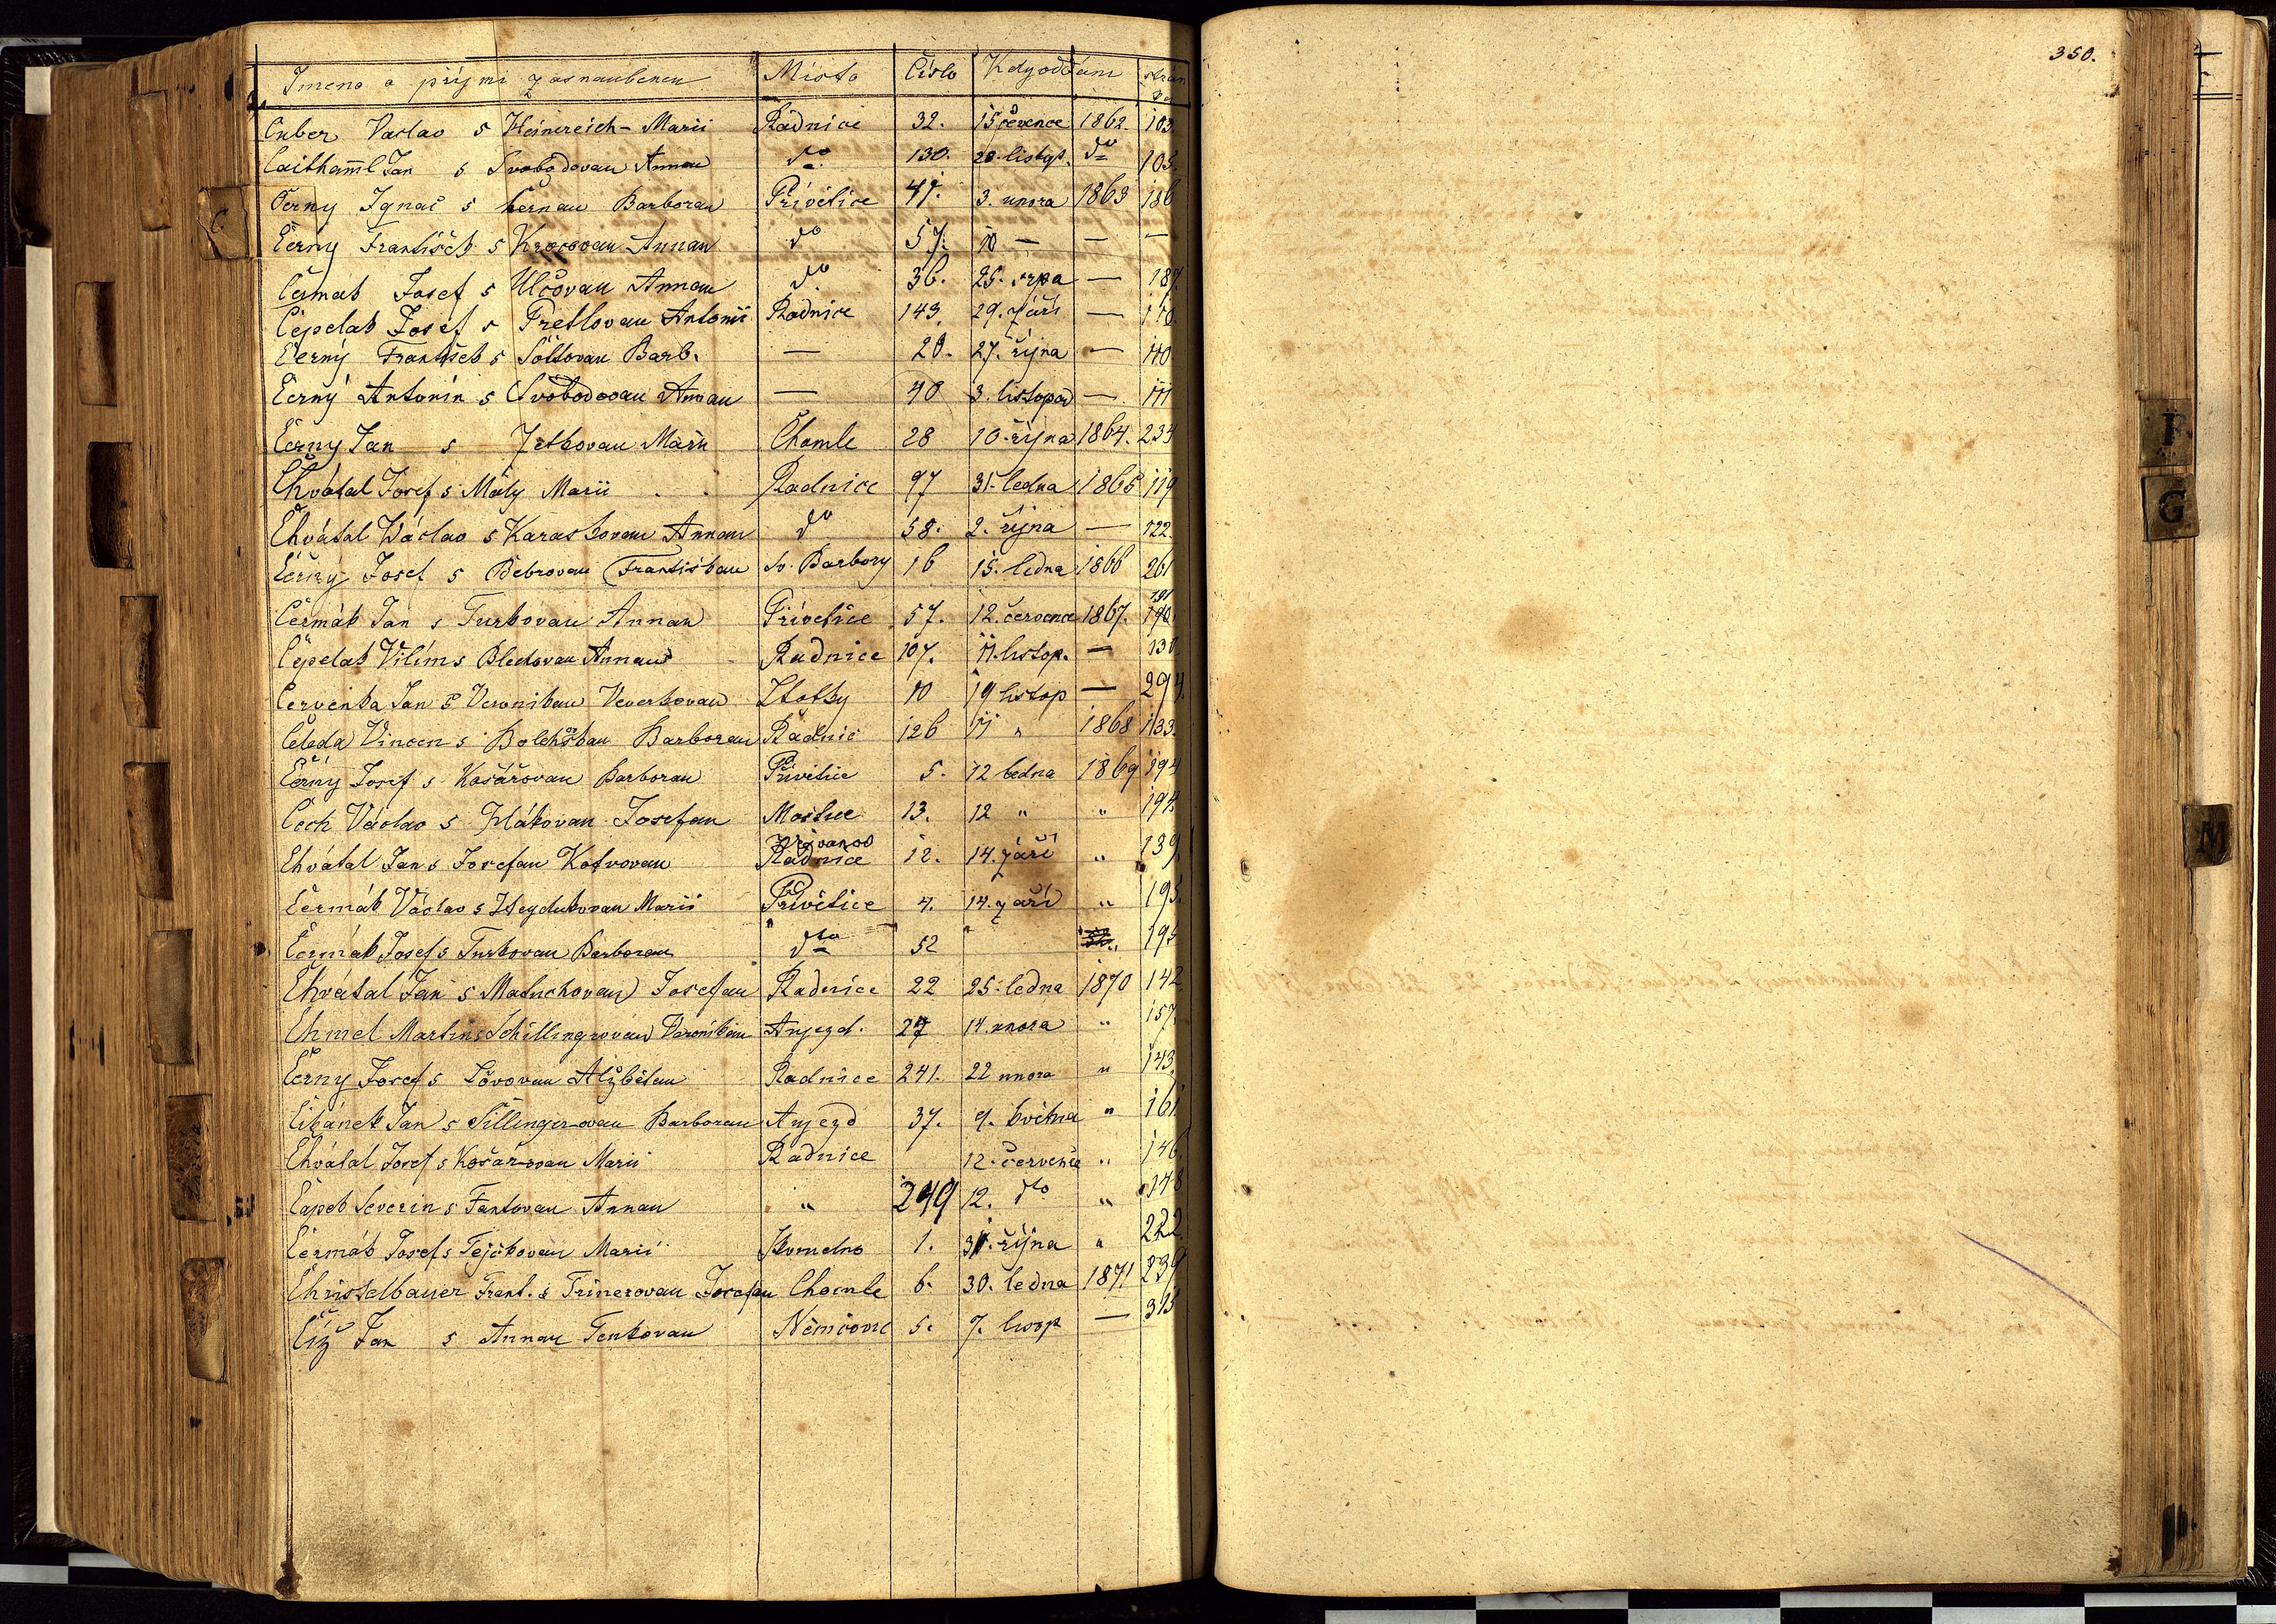 350.
Jmeno a přijmi zasnaubenců Místo Číslo Kdy oddáni
Cuber Vaclav s Heinereich- Marii Radnice 32. 15 července 1862. 103.
Caithaml Jan s Svobodovau Annau do 130. 28. listop. do 105.
C.
Černy Ignac s Černau Barborau Přivětice 47. 3. unora 1863 186
Černy Frantíšek s Annau do 57. 10 — — —
Čermák Josef s Ulčovau Annau do 36. 25. srpa — 187.
Čepelak Josef s Antonii Radnice 143. 29. září — 110.
Černý Frantíšek s Barb. — 20. 27. října — 110
Černý Antonín s Svobodovau Annau — 40 3. listopad — 111
Černy Jan s Marii Chomle 28 10. října 1864. 234
Chvátal Josef s Mály Marii Radnice 97 31. ledna 1865 119
Chvátal Václav s Karaskovau Annau do 58. 2. října — 122.
Černý Josef s Bebrovau Frantiskau Sv. Barbory 16 15. ledna 1866 261
Čermák Jan s Turkovau Annau Přivetice 57. 12. července 1867. 191 190.
Čepelak Vilím s Annau Radnice 107. 11. listop. — 130
Červenka Jan s Veronikau Veverkovau 10 19 listop — 294.
Čeleda Vincen s Barborau Radnic 126 11 „ 1868 133.
Černy Josef s Košařovau Barborau Přivětice 5. 12 ledna 1869 194
Čech Václav s Josefau Moštice 13. 12 „ „ 194.
Chvátal Jan s Josefau Kotrovau Radnice 12. 14. září „ 139.
Čermák Václav s Heydukovau Marii Přivětice 4. 14. září „ 195.
Čermák Josef s Turkovau Barborau dto 52 „ 195
Chvátal Jan s Matuchovau Josefau Radnice 22 25. ledna 1870 142
Chmel Martin s Schillingrovau Veronikau Aujezd. 27 14. unora „ 157.
Černy Josef s Lövovau Alžbětau Radnice 241. 22 unora „ 143.
Cibánek Jan s Šillingerovau Barborau Aujezd 37. 9. května „ 161.
Chvátal Josef s Košařovau Marii Radnice 12. července „ 146.
Čapek Severin s Fantovau Annau „ 249 12. dto „ 148
Čermák Josef s Tejčkovau Marii 1. 31. října „ 222.
Christelbauer Frant. s Trinerovau Josefau Chomle 6. 30. ledna 1871 239
Číž Jan s Annau Tenkovau Němčovic 5. 7. — 315
F
G
M